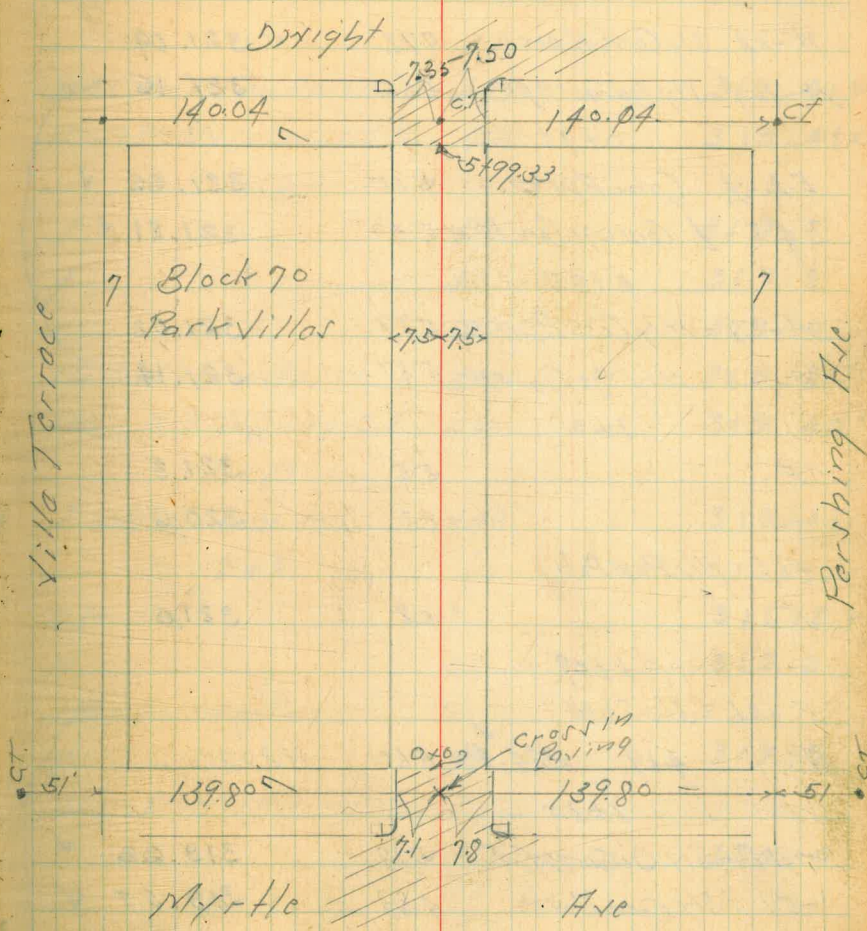 Dwight
7.35 7.50
C.T.
140.04
140.04
CT
7
5+99.33
7
Block 70
7
Park Villas
7.5 7.5
Villa Terrace
Pershing Ave.
0+00
Cross in
Paving
CT.
51'
139.80
7
139.80
51
CT
7.1 7.8
Myrtle Ave